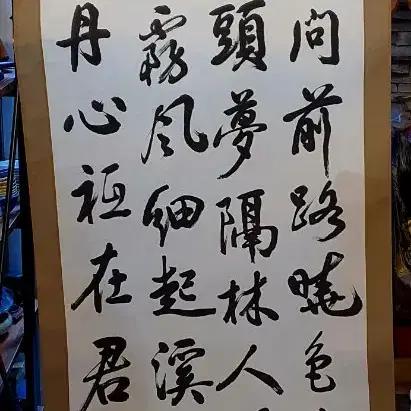 問前路曉色
頭夢隔林人
霧風細起溪
丹心祗在君